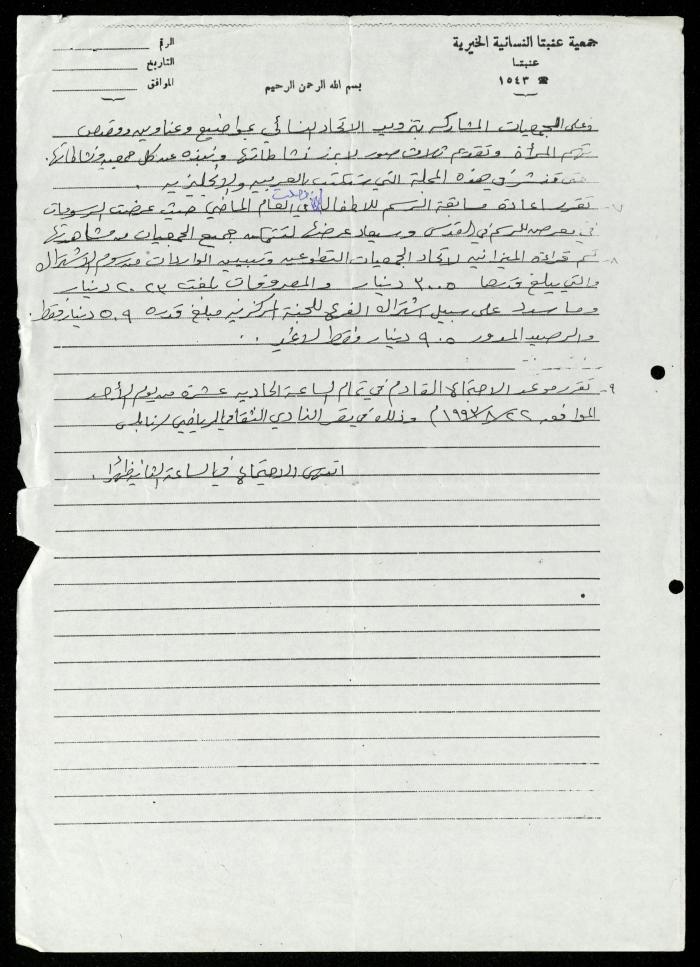 جمعية عنبتا النسائية الخيرية
عنبتا
☎ ١٥٤٣
الرقم
التاريخ
الموافق
بسم الله الرحمن الرحيم
وعلى الجمعيات المشاركة تزويد الاتحاد النسائي بمواضيع وعناوين وقصص
تهم المرأة وتقديم ثلاث صور لابرز نشاطاتها ونبذه عن كل جمعيه ونشاطاتها
في هذه المجلة التي ستكتب بالعربيه والانجليزيه .
٧- تقرر اعادة مسابقة الرسم للاطفال في العام الماضي حيث عرضت الرسومات
في معرض للرسم في القدس وسيعاد عرضها لتتمكن جميع الجمعيات من مشاهدتها
٨- تم قراءة الميزانيه لاتحاد الجمعيات التطوعيه وتبين الواردات من رسوم الاشتراك
والتي يبلغ قدرها ٣٠٠٥ دينار والمصروفات بلغت ٢٠٢٣ دينار
وما سدد على سبيل اشتراك الفرع للجنة المركزيه مبلغ قدره ٥٠٩ دينار فقط .
والرصيد المدور ٩٠٥ دينار فقط لاغير ..
٩- تقرر موعد الاجتماع القادم في تمام الساعة الحاديه عشرة من يوم الأحد
الموافق ٢٢/٨/١٩٩٣م وذلك في مقر النادي الثقافي الرياضي / نابلس
انتهى الاجتماع في الساعة الثانيه ظهرا .